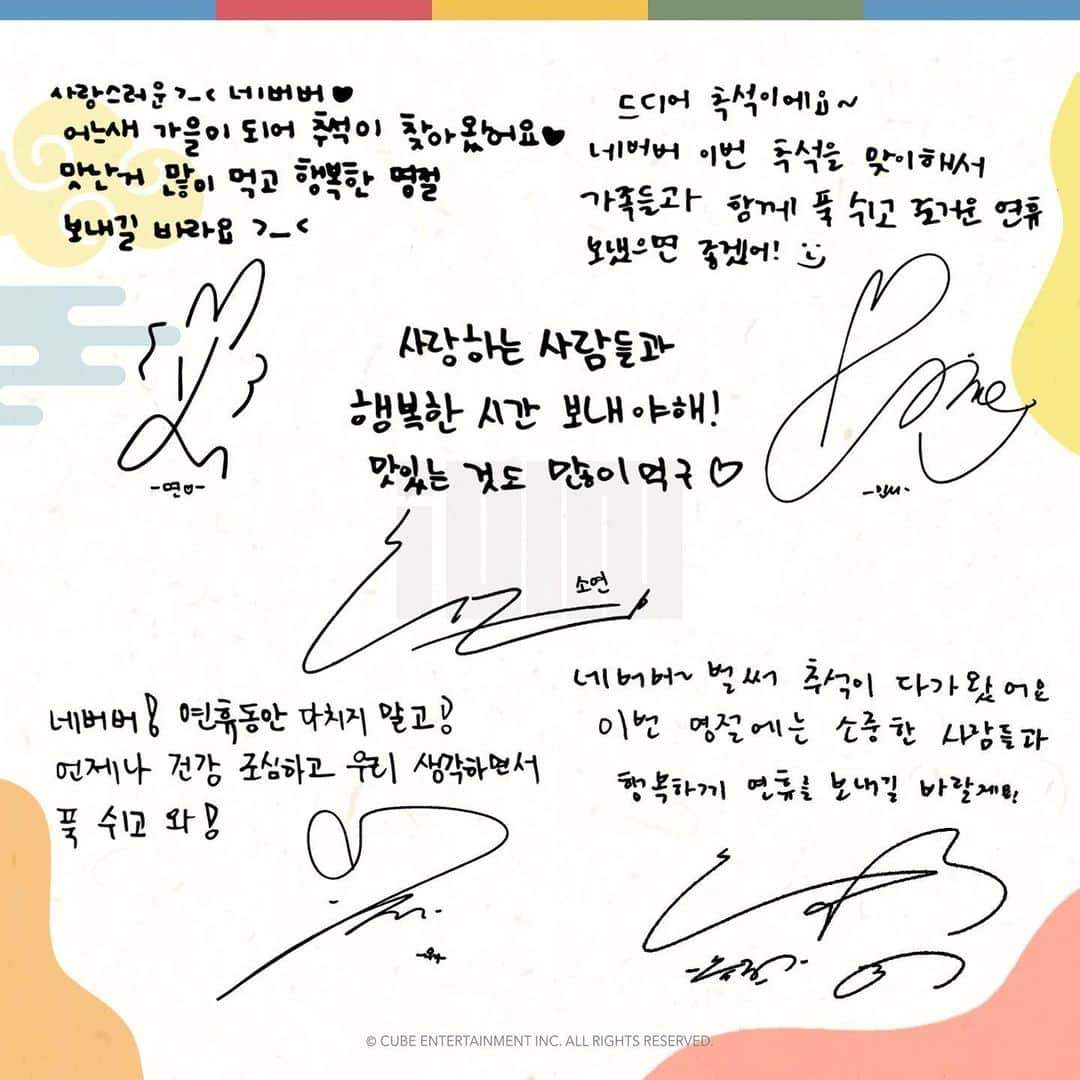 사랑스러운 >_< 네버버♥
어느새 가을이 되어 추석이 찾아왔어요♥
맛난거 많이 먹고 행복한 명절
보내길 바라요 >_<
-면♡-
드디어 추석이에요~
네버버 이번 추석을 맞이해서
가족들과 함께 푹 쉬고 즐거운 연휴
보냈으면 좋겠어! :)
-민니-
사랑하는 사람들과
행복한 시간 보내야해!
맛있는 것도 많이먹구♡
소연
네버버! 연휴동안 다치지 말고!
언제나 건강 조심하고 우리 생각하면서
푹 쉬고 와!
네버버~ 벌써 추석이 다가왔어요
이번 명절에는 소중한 사람들과
행복하게 연휴를 보내길 바랄게요!
© CUBE ENTERTAINMENT INC. ALL RIGHTS RESERVED.